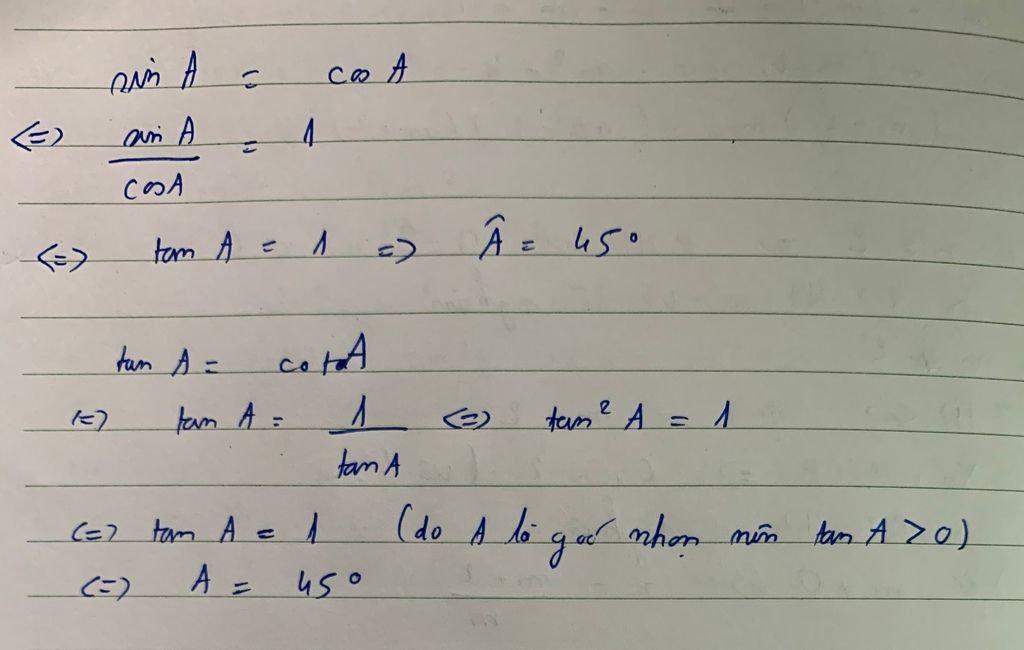 sin A = cos A
<=> sin A / cos A = 1
<=> tan A = 1 => Â = 45°
tan A = cot A
<=> tan A = 1 / tan A <=> tan² A = 1
<=> tan A = 1 (do A là góc nhọn nên tan A > 0)
<=> A = 45°